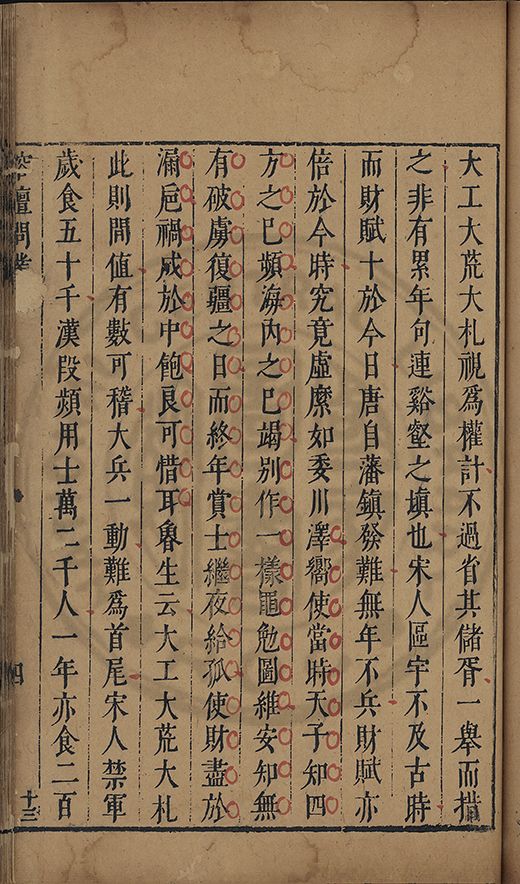 大工大荒大札視爲權計不過省其儲胥一舉而措
之非有累年句連谿壑之塡也宋人區宇不及古時
而財賦十於今日唐自藩鎭發難無年不兵財賦亦
倍於今時究竟虛縻如委川澤嚮使當時天子知四
方之已頻海內之已竭別作一樣黽勉圖維安知無
有破虜復疆之日而終年賞士繼夜給孤使財盡於
漏巵禍成於中飽良可惜耳魯生云大工大荒大札
此則間値有數可稽大兵一動難爲首尾宋人禁軍
歲食五十千漢段頻用士萬二千人一年亦食二百
壇問 四 十三